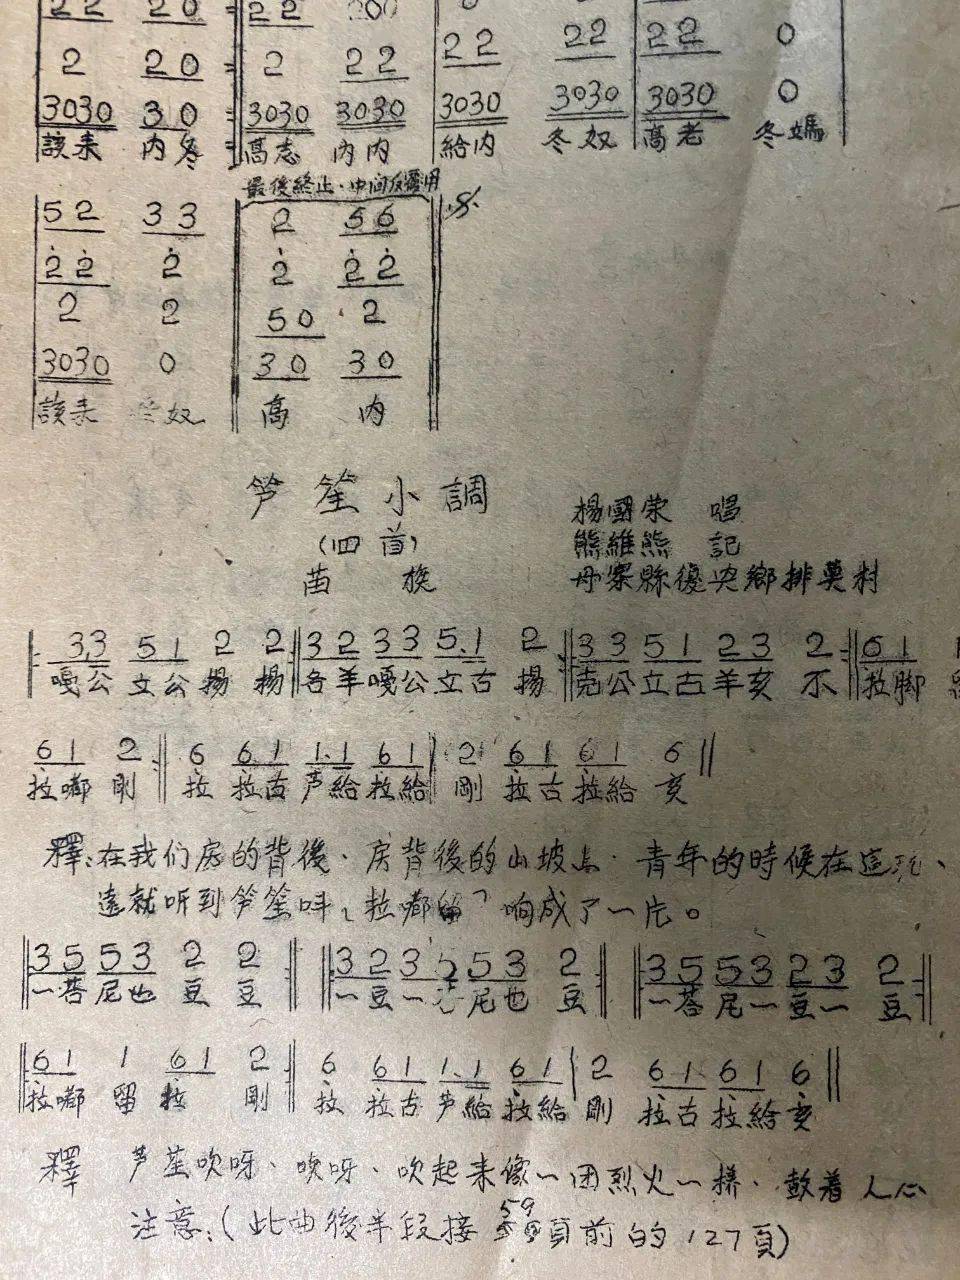 22 20 22 200 0
2 20 2 22 22 22 22 0
3030 30 3030 3030 3030 3030 3030 0
該耒 内冬 高志 内内 給内 冬奴 高老 冬媽
最後終止·中间反覆用
52 33 2 56
22 2 2 22
2 2 50 2
3030 0 30 30
該耒 奴 高 内
笋笙小調
(四首)
苗 族
楊國荣 唱
熊維熊 記
丹寨縣復央鄉排莫村
33 51 2 2 32 33 5.1 2 33 51 23 2 61
嘎公 立公 揚 揚 各羊嘎公立古 揚 克公立古羊亥 不 拉脚
61 2 6 61 1.1 61 2 61 61 6
拉嘟 剛 拉 拉古 芦給拉給 剛 拉古拉給 亥
釋:在我们房的背後、房背後的山坡上·青年的時候在這玩、
遠就听到笋笙叫「拉嘟留」响成了一片。
35 53 2 2 32 35 53 2 35 53 23 2
一荅尼也 豆 豆 一豆一荅尼也 豆 一荅尼一豆一 豆
61 1 61 2 6 61 1.1 61 2 61 61 6
拉嘟 留 拉 剛 拉 拉古 芦給 拉給 剛 拉古拉給亥
釋 芦笙吹呀、吹呀、吹起来像一团烈火一样、鼓着人心
注意:(此曲後半段接59頁前的127頁)